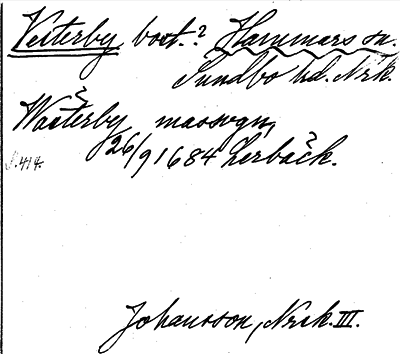 Vesterby, bort.? Hammars sn.
Sundbo hd. Nrk.
Wästerby, massugn,
26/9 1684 Lerbäck.
S. 414.
Johansson, Nrck. III.